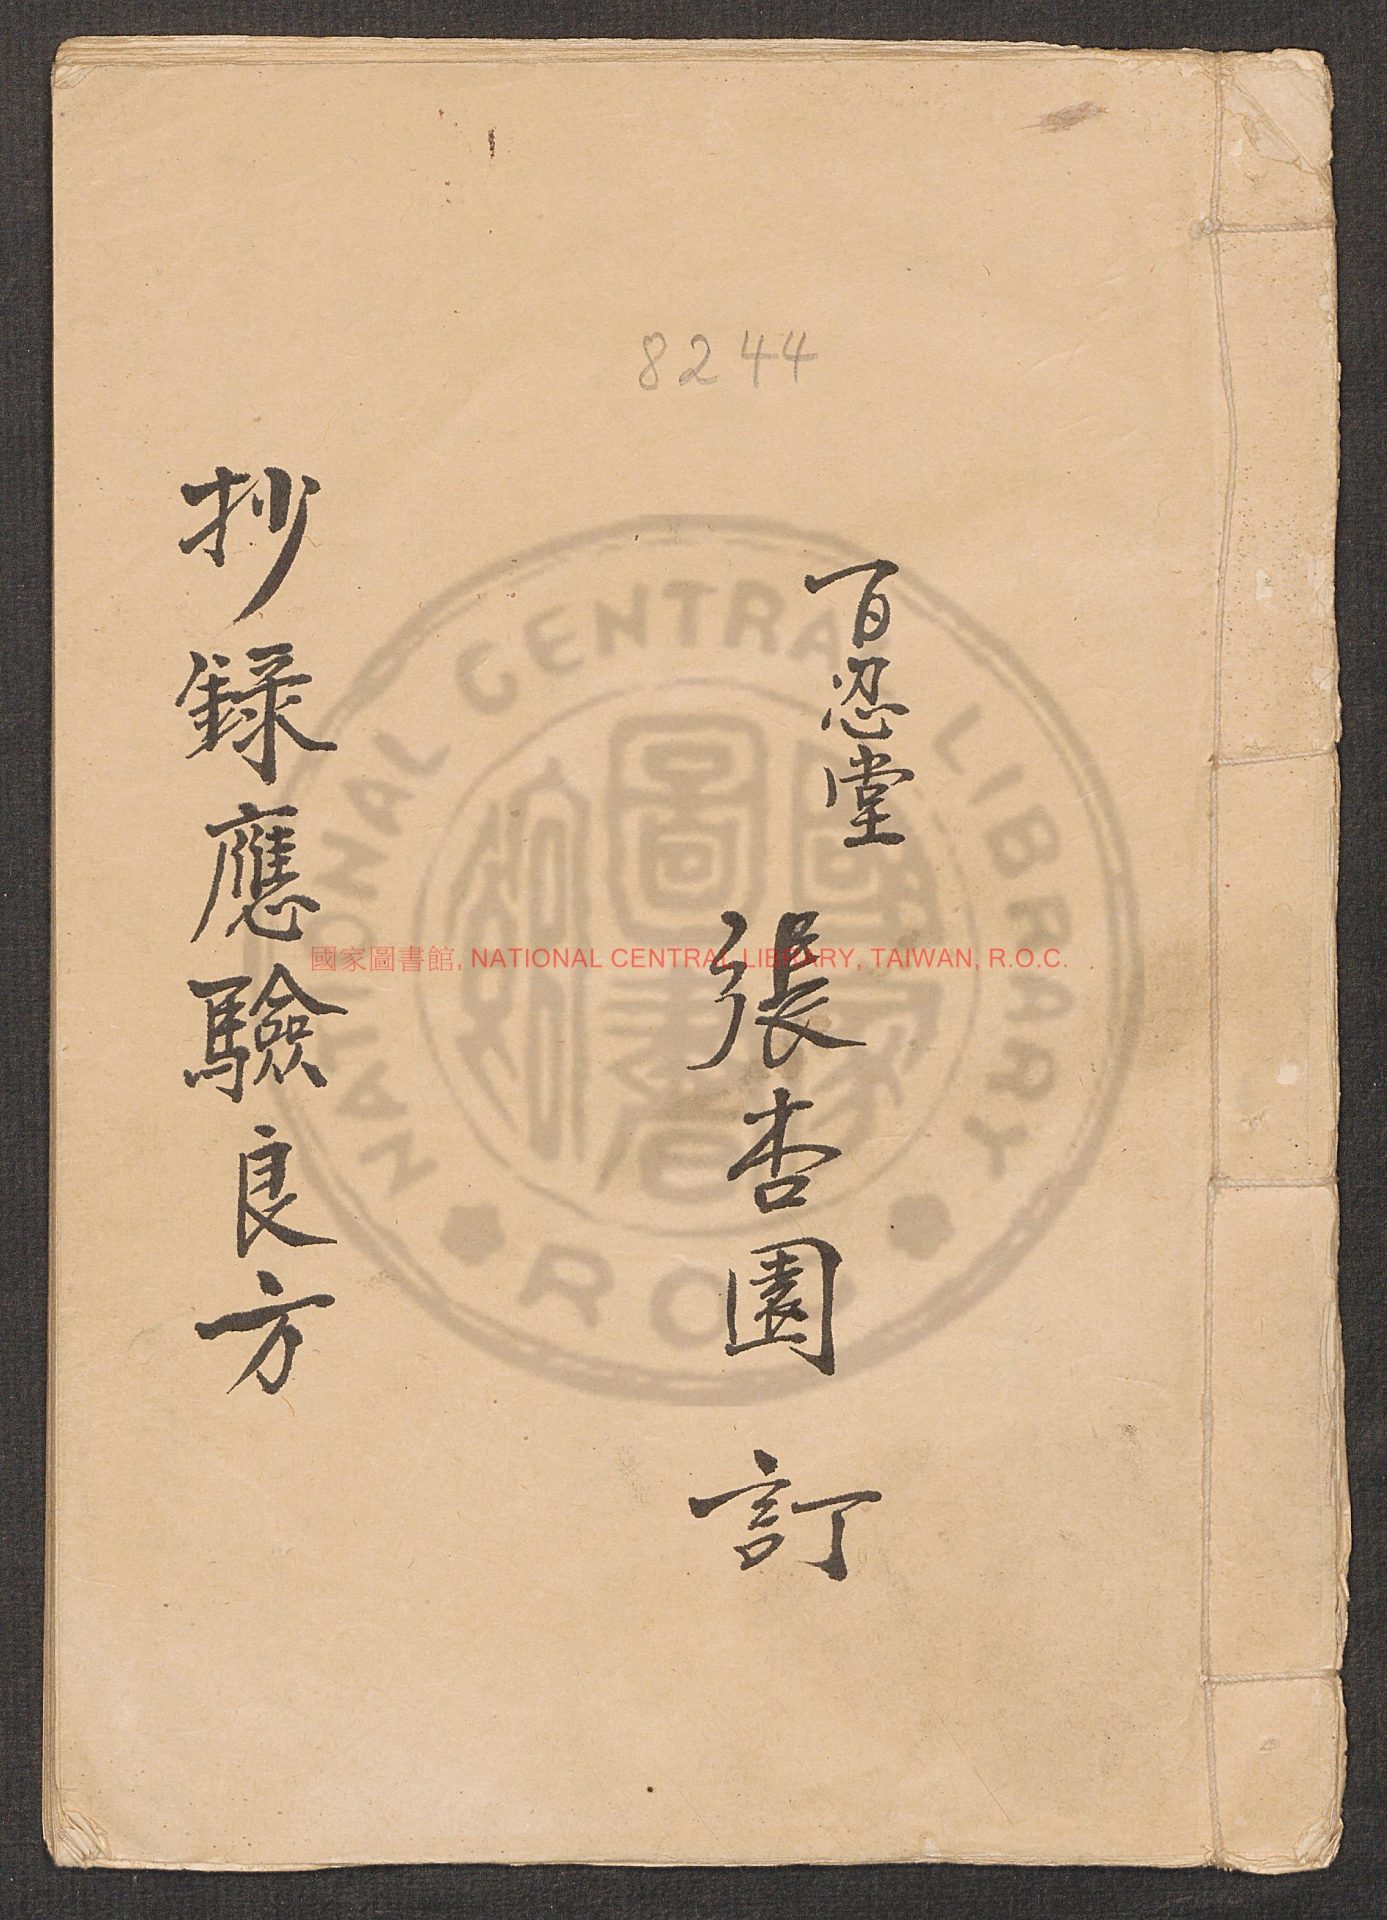 8244
百忍堂
張杏園 訂
抄錄應驗良方
國家圖書館, NATIONAL CENTRAL LIBRARY, TAIWAN, R.O.C.
NATIONAL CENTRAL LIBRARY
R.O.C.
國家圖書館